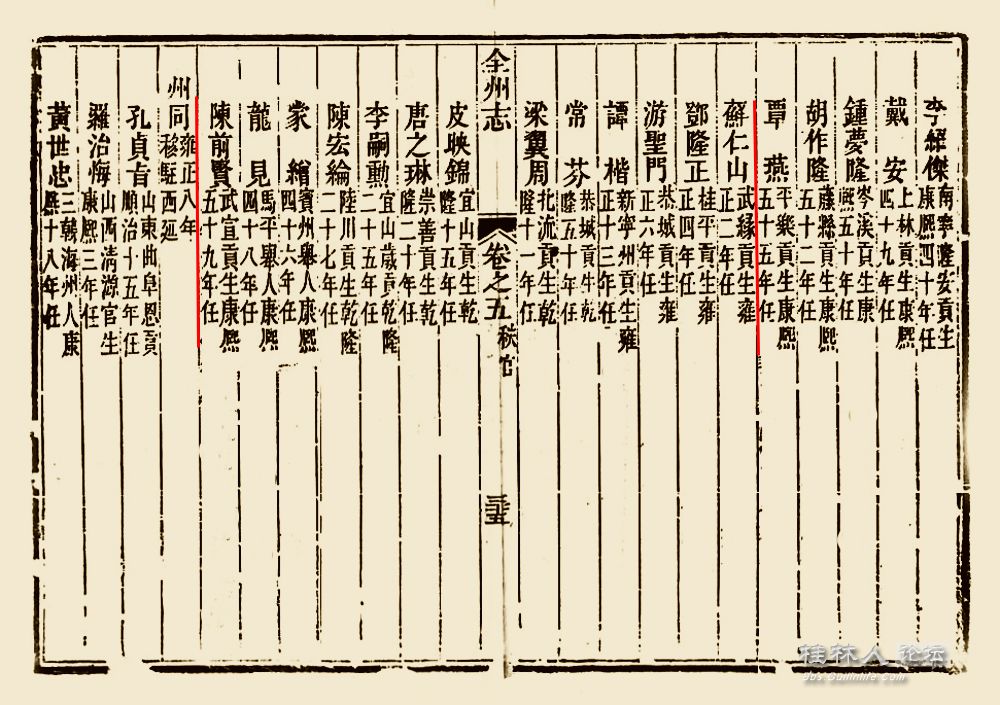 李經傑 南寧隆安貢生康熙四十年任
戴安 上林貢生康熙四十九年任
鍾夢隆 岑溪貢生康熙五十年任
胡作隆 藤縣貢生康熙五十二年任
覃燕 平樂貢生康熙五十五年任
蘇仁山 武緣貢生雍正二年任
鄧隆正 桂平貢生雍正四年任
游聖門 恭城貢生雍正六年任
譚楷 新寧州貢生雍正十三年任
常芬 恭城貢生乾隆五十年任
梁翼周 北流貢生乾隆十一年任
全州志 卷之五 秩官
皮映錦 宜山貢生乾隆十五年任
唐之琳 崇善貢生乾隆二十年任
李嗣勳 宜山歲貢乾隆二十五年任
陳宏綸 陸川貢生乾隆二十七年任
蒙繒 賓州舉人康熙四十六年任
龍見 馬平舉人康熙四十八年任
陳前賢 武宣貢生康熙五十九年任
州同 雍正八年移駐西延
孔貞 山東曲阜恩貢順治十五年任
羅治 山西清源官生康熙三年任
黃世忠 三韓海州人康熙十八年任
桂林人论坛
bbs.Guilinlife.com